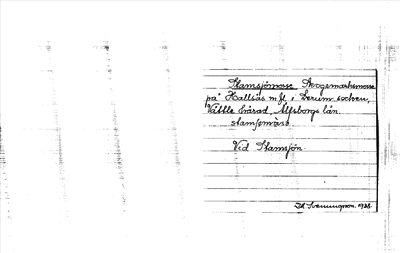 Stamsjömosse Skogsmarksmosse
på Hallsås m fl i Lerum socken,
Vättle härad, Älfsborgs län.
stamsjömåsə
Vid Stamsjön.
1928